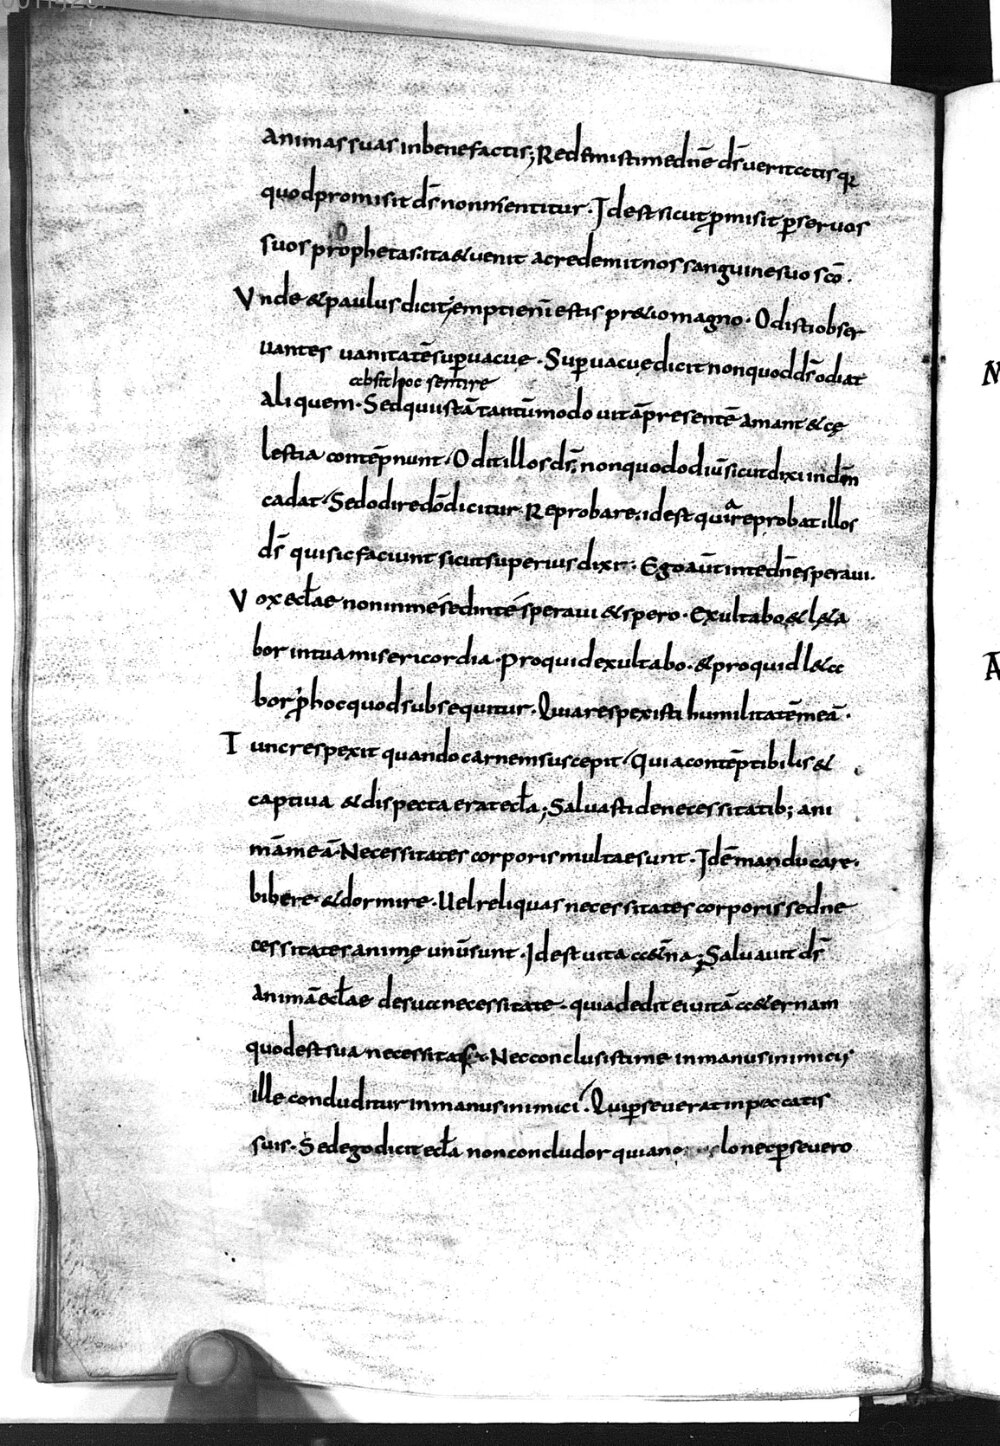 animas suas in benefactis; Redemisti me dn̄e ds̄ ueritatis qr
quod promisit ds̄ non mentitur. Id est sicut ꝓmisit ꝑ seruos
suos prophetas. ita & uenit ac redemit nos sanguine suo sc̄o.
Vnde & paulus dicit; empti eni᷎ estis pr&io magno. Odisti obser
uantes uanitatē suꝑuacuę. Suꝑuacuę dicit non quod ds̄ odiat
absit hoc sentire
aliquem. Sed qui istā tantūmodo uitā presentē amant & cę
lestia contēpnunt. Odit illos ds̄, non quod odiū sicut dixi in dm̄
cadat. Sed odire dō dicitur. Reprobare. id est quia reprobat illos
ds̄ qui sic faciunt sicut superius dixi. Ego aut̄ in te dn̄e speraui.
Vox eccl̄ae non in me sed in te speraui & spero. Exultabo & l&a
bor in tua misericordia. Pro quid exultabo. & pro quid l&a
bor ꝓ hoc quod subsequitur. Quia respexisti humilitatē meā.
Tunc respexit quando carnem suscepit. Quia contēptibilis &
captiua & dispecta erat eccl̄a; Saluasti de necessitatib; ani
mā meā. Necessitates corporis multae sunt. Idē manducare.
bibere. & dormire. Uel reliquas necessitates corporis sed ne
cessitates animę unū sunt. Id est uita aet̄na; Saluauit ds̄
animā eccl̄ae de sua necessitate. quia dedit ei uitā a&ernam
quod est sua necessitas. Nec conclusisti me in manus inimicis
ille concluditur in manus inimici. Qui ꝑseuerat in peccatis
suis. Sed ego dicit eccl̄a non concludor quia lo nec ꝑseuero
N
A